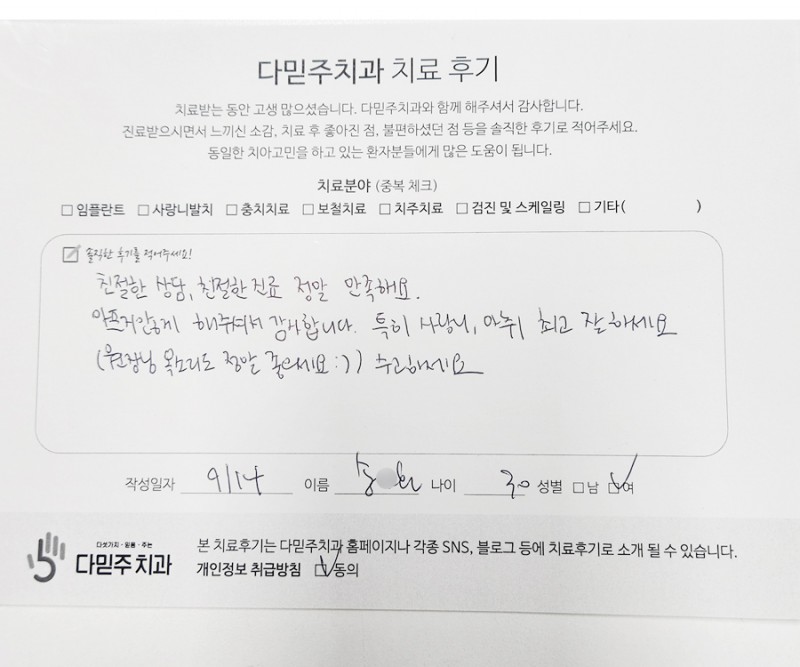 다믿주치과 치료 후기
치료받는 동안 고생 많으셨습니다. 다믿주치과와 함께 해주셔서 감사합니다.
진료받으시면서 느끼신 소감, 치료 후 좋아진 점, 불편하셨던 점 등을 솔직한 후기로 적어주세요.
동일한 치아고민을 하고 있는 환자분들에게 많은 도움이 됩니다.
치료분야 (중복 체크)
□ 임플란트 □ 사랑니발치 □ 충치치료 □ 보철치료 □ 치주치료 □ 검진 및 스케일링 □ 기타( )
솔직한 후기를 적어주세요!
친절한 상담, 친절한 진료 정말 만족해요.
아프지않게 해주셔서 감사합니다. 특히 사랑니, 마취 최고 잘하세요
(원장님 목소리도 정말 좋으세요:)) 수고하세요
작성일자 9/14 이름 송 나이 30 성별 □남 ☑여
다섯가지·믿음·주는
다믿주치과
본 치료후기는 다믿주치과 홈페이지나 각종 SNS, 블로그 등에 치료후기로 소개 될 수 있습니다.
개인정보 취급방침 ☑동의